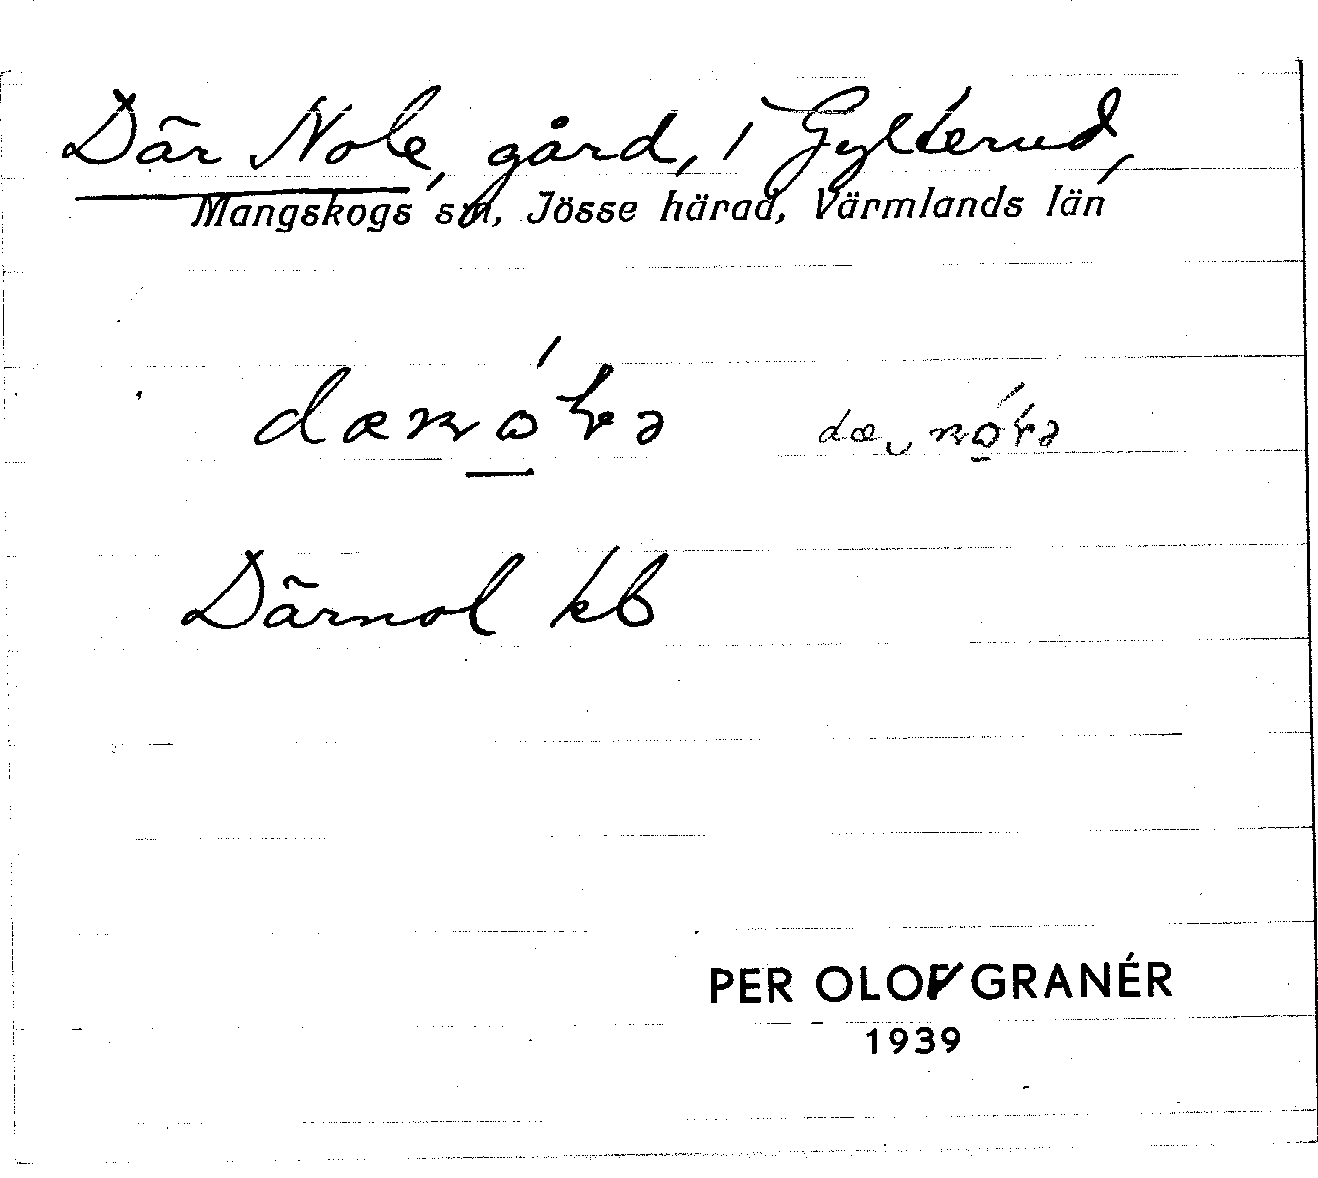 Där Nole, gård, i Gylterud,
Mangskogs sn, Jösse härad, Värmlands län
Därnol kb
PER OLOF GRANÉR
1939